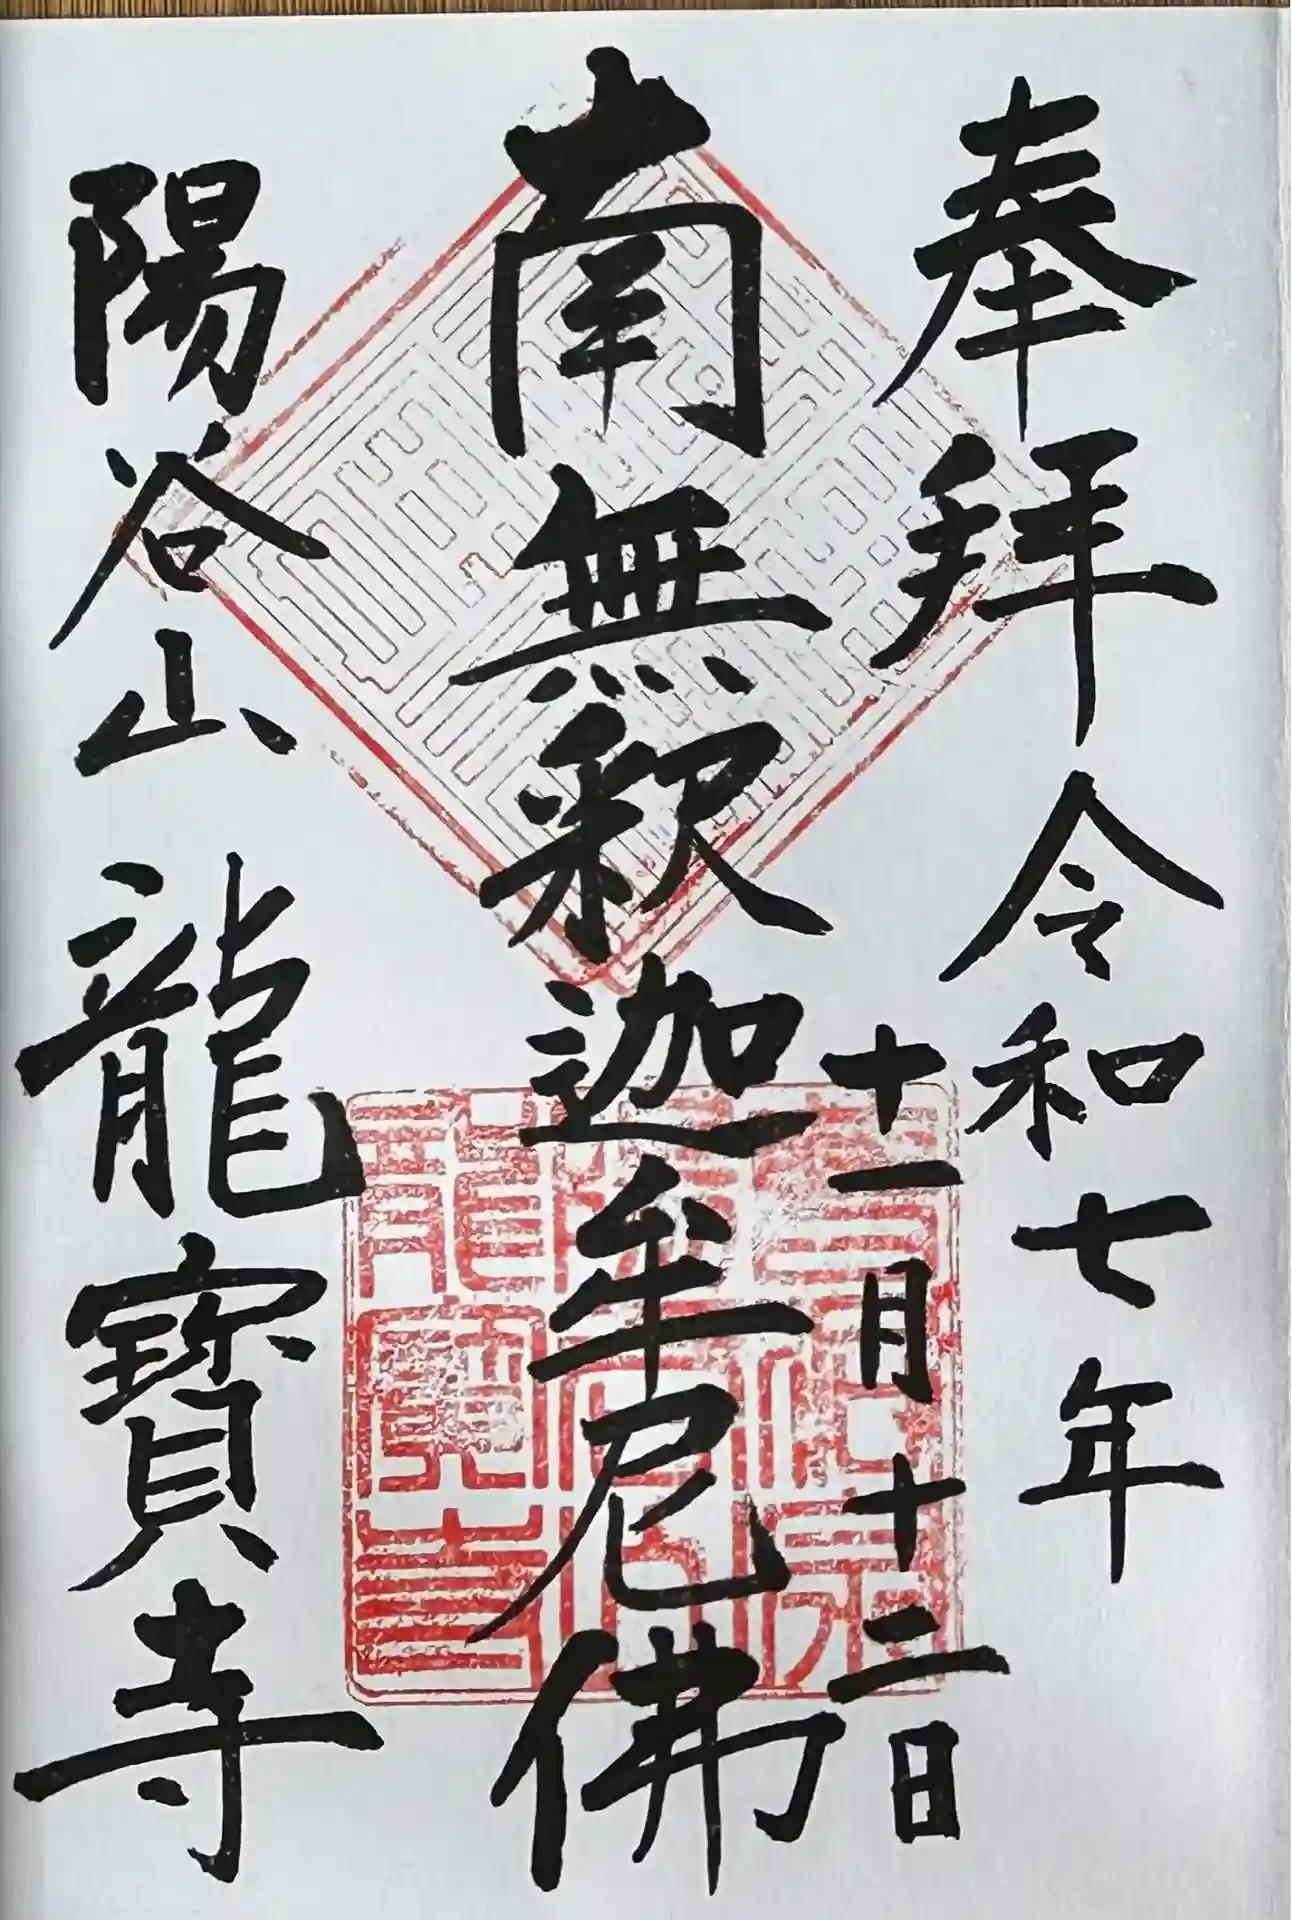 奉拜 令和七年
十一月十二日
南無釈迦牟尼佛
陽谷山 龍寶寺